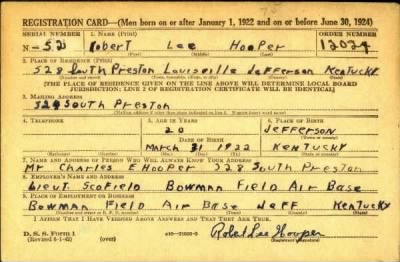 REGISTRATION CARD—(Men born on or after January 1, 1922 and on or before June 30, 1924)
SERIAL NUMBER 1. NAME (Print) ORDER NUMBER
N-52 Robert Lee Hooper 12024
(First) (Middle) (Last)
2. PLACE OF RESIDENCE (Print)
528 South Preston Louisville Jefferson Kentucky
(Number and street) (Town, township, village, or city) (County) (State)
[THE PLACE OF RESIDENCE GIVEN ON THE LINE ABOVE WILL DETERMINE LOCAL BOARD
JURISDICTION; LINE 2 OF REGISTRATION CERTIFICATE WILL BE IDENTICAL]
3. MAILING ADDRESS
328 South Preston
[Mailing address if other than place indicated on line 2. If same insert word same]
4. TELEPHONE 5. AGE IN YEARS 6. PLACE OF BIRTH
20 Jefferson
DATE OF BIRTH (Town or county)
March 31 1922 Kentucky
(Exchange) (Number) (Mo.) (Day) (Yr.) (State or country)
7. NAME AND ADDRESS OF PERSON WHO WILL ALWAYS KNOW YOUR ADDRESS
Mr Charles E Hooper 328 South Preston
8. EMPLOYER'S NAME AND ADDRESS
Lieut Scofield Bowman Field Air Base
9. PLACE OF EMPLOYMENT OR BUSINESS
Bowman Field Air Base Jeff Kentucky
(Number and street or R. F. D. number) (Town) (County) (State)
I AFFIRM THAT I HAVE VERIFIED ABOVE ANSWERS AND THAT THEY ARE TRUE.
D. S. S. Form 1
(Revised 6-1-42) (over) Robert Lee Hooper
(Registrant's signature)